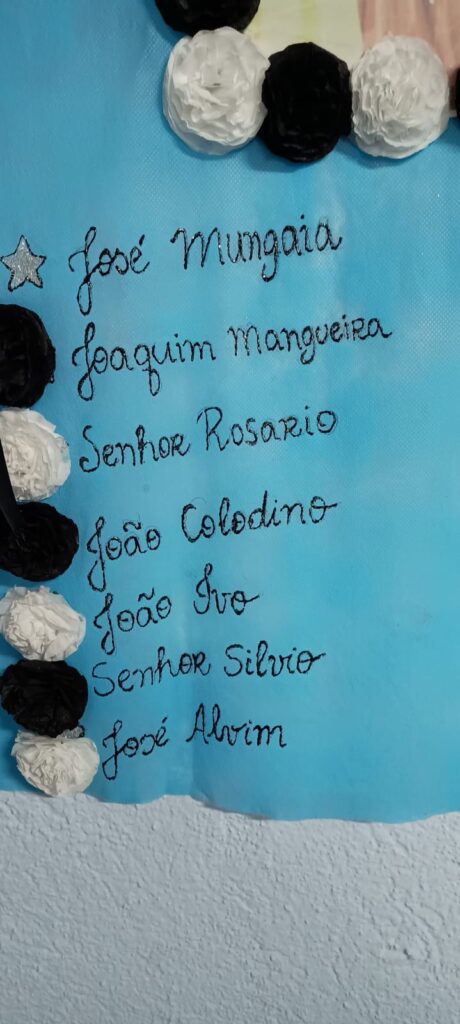 José Mungaia
Joaquim Mangueira
Senhor Rosario
João Colodino
João Ivo
Senhor Silvio
José Alvim